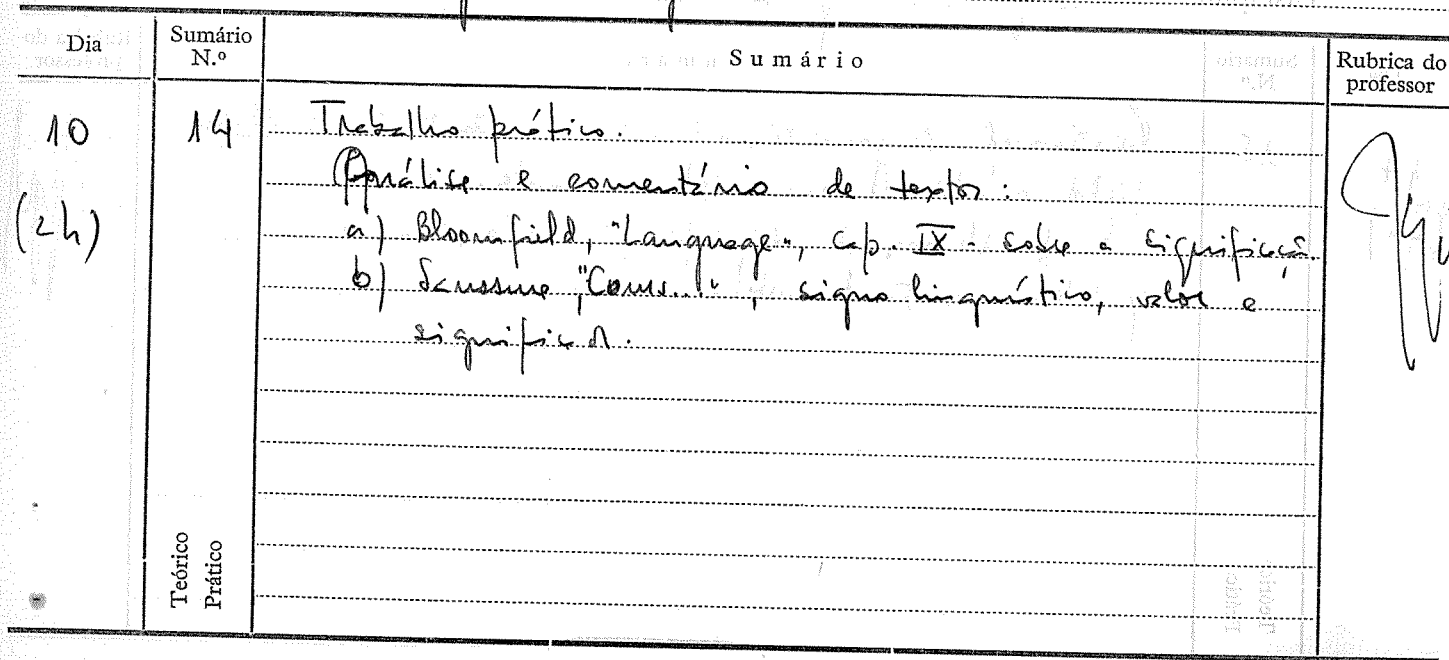 Dia
Sumário N.º
Sumário
Rubrica do professor
10
(2h)
14
Trabalho prático.
Análise e comentário de textos:
a) Bloomfield, "Language", cap. IX - sobre a significação
b) Saussure, "Cours...", signo linguístico, valor e
Teórico
Prático